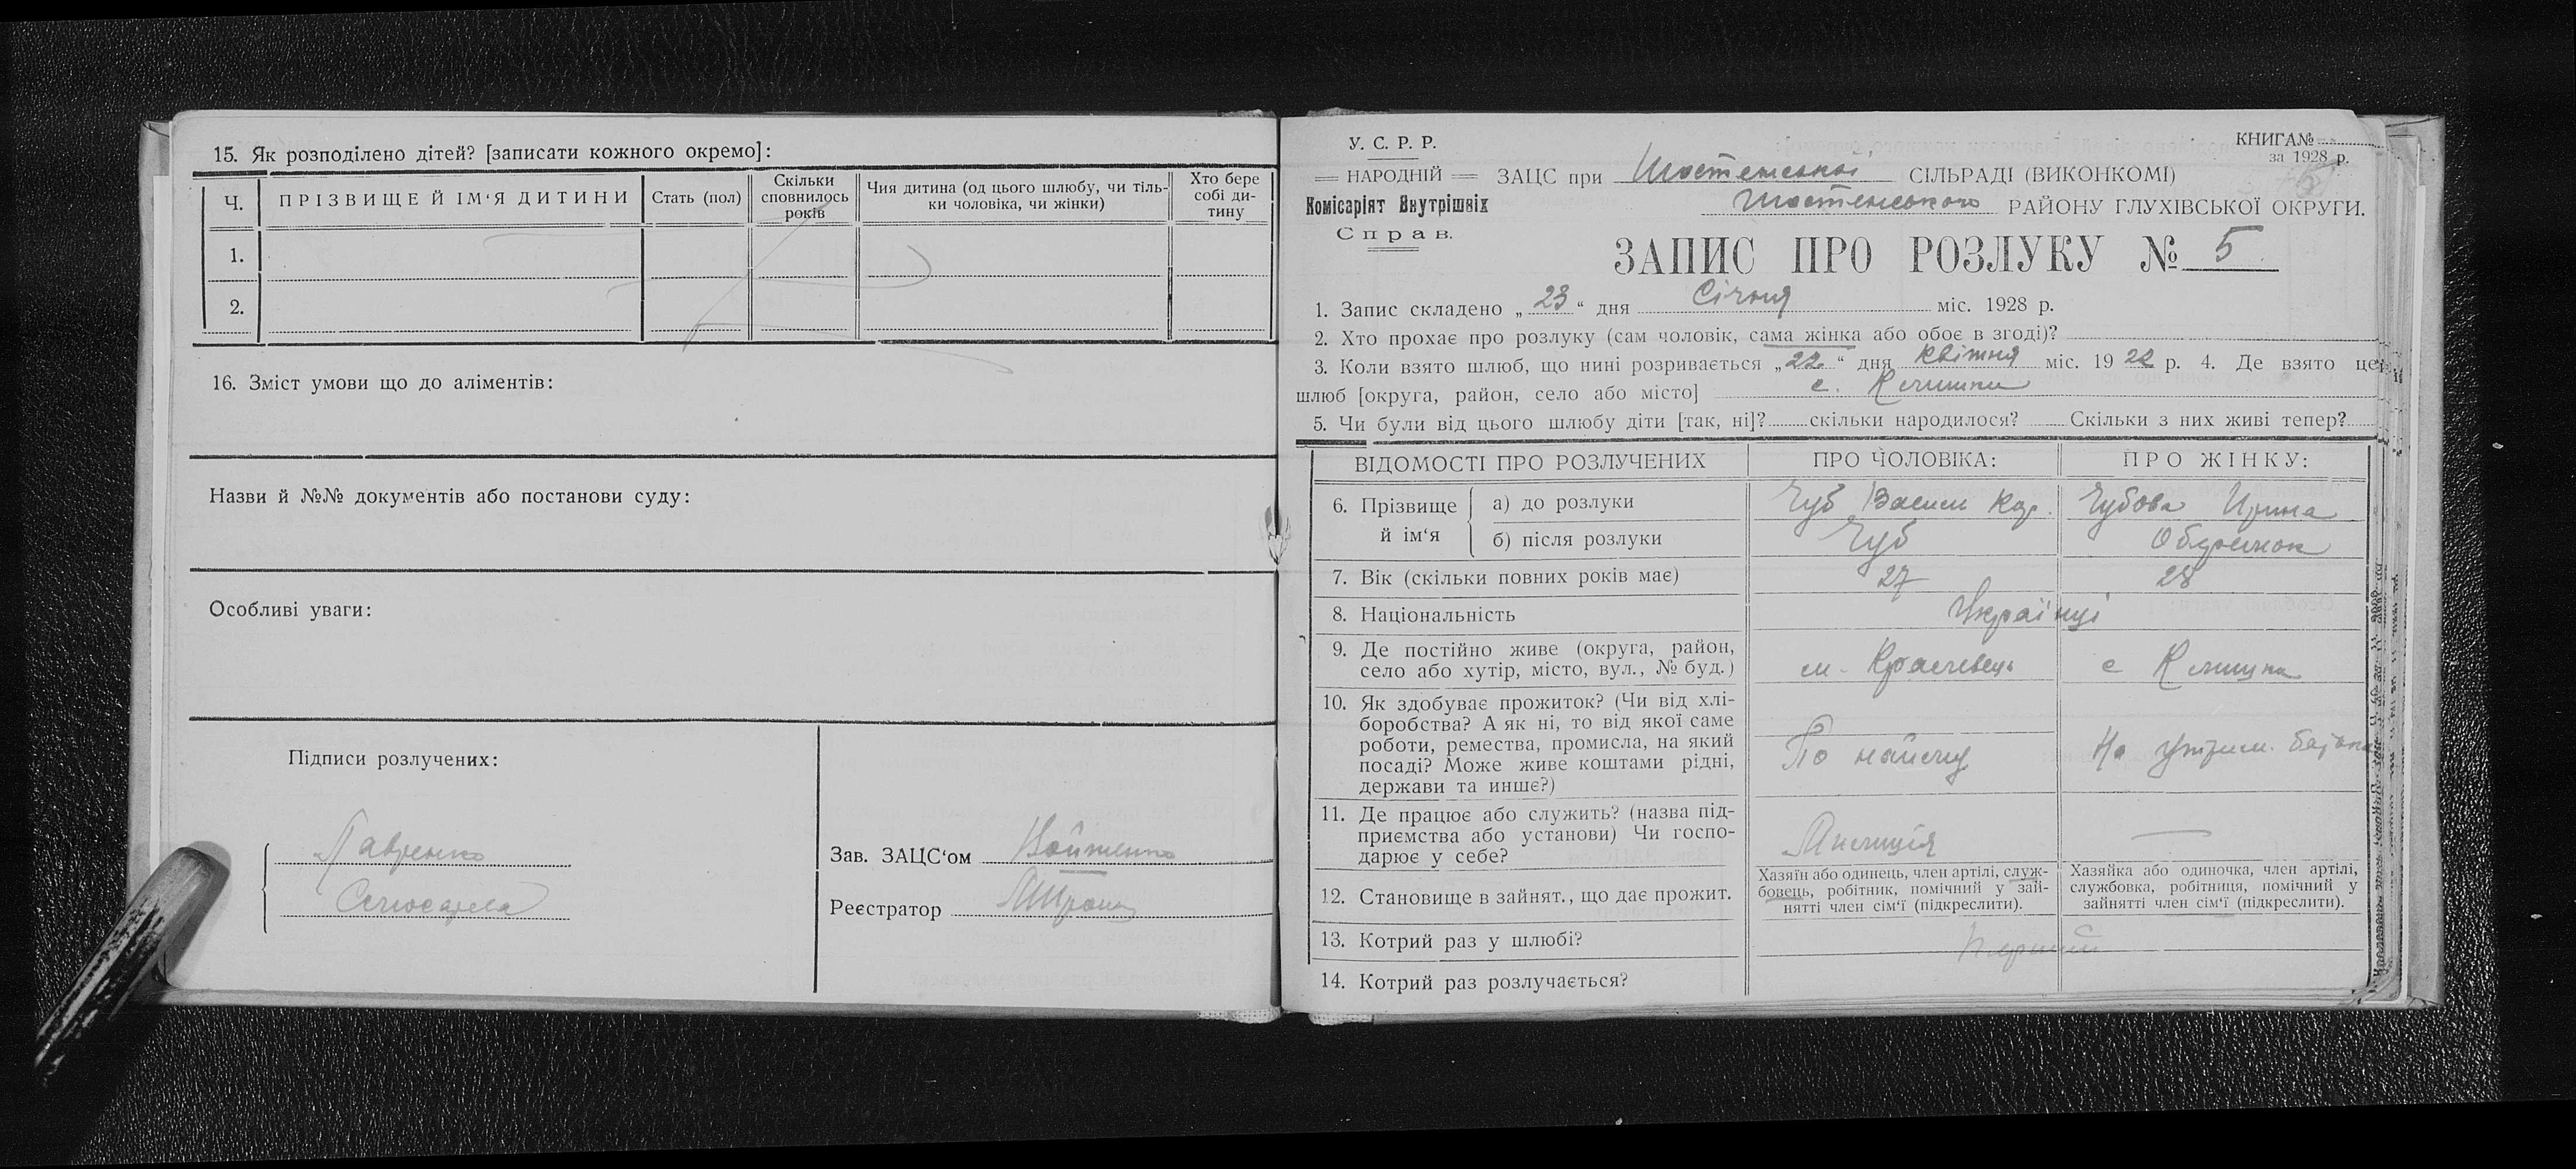 15. Як розподілено дітей? [записати кожного окремо]:
Ч.
ПРІЗВИЩЕ Й ІМ‘Я ДИТИНИ
Стать (пол)
Скільки сповнилось років
Чия дитина (од цього шлюбу, чи тіль-
ки чоловіка, чи жінки)
Хто бере собі ди-
тину
1.
2.
16. Зміст умови що до аліментів:
Назви й №№ документів або постанови суду:
Особливі уваги:
Підписи розлучених:
Гавренко
Зав. ЗАЦС‘ом Войтенко
Реєстратор
У. С. Р. Р.
НАРОДНІЙ
Комісаріят Внутрішніх
Справ.
КНИГА №
за 1928 р.
5
ЗАЦС при Шостенській СІЛЬРАДІ (ВИКОНКОМІ)
Шостенського РАЙОНУ ГЛУХІВСЬКОЇ ОКРУГИ.
ЗАПИС ПРО РОЗЛУКУ № 5
1. Запис складено „23“ дня Січня міс. 1928 р.
2. Хто прохає про розлуку (сам чоловік, сама жінка або обоє в згоді)?
3. Коли взято шлюб, що нині розривається „22“ дня квітня міс. 1922 р. 4. Де взято цей
шлюб [округа, район, село або місто] с.
5. Чи були від цього шлюбу діти [так, ні]? скільки народилося? Скільки з них живі тепер?
ВІДОМОСТІ ПРО РОЗЛУЧЕНИХ
ПРО ЧОЛОВІКА:
ПРО ЖІНКУ:
6. Прізвище й ім‘я
а) до розлуки
Чуб Васил Кар.
Чубова Ирина
б) після розлуки
Чуб
7. Вік (скільки повних років має)
27
28
8. Національність
Українці
9. Де постійно живе (округа, район,
село або хутір, місто, вул., № буд.)
м.
с
10. Як здобуває прожиток? (Чи від хлі-
боробства? А як ні, то від якої саме
роботи, ремества, промисла, на який
посаді? Може живе коштами рідні,
держави та инше?)
По найму
На утрим. батька
11. Де працює або служить? (назва під-
приємства або установи) Чи госпо-
дарює у себе?
12. Становище в зайнят., що дає прожит.
Хазяїн або одинець, член артілі, служ-
бовець, робітник, помічний у зай-
нятті член сім‘ї (підкреслити).
Хазяйка або одиночка, член артілі,
службовка, робітниця, помічний у
зайнятті член сім‘ї (підкреслити).
13. Котрий раз у шлюбі?
перший
14. Котрий раз розлучається?